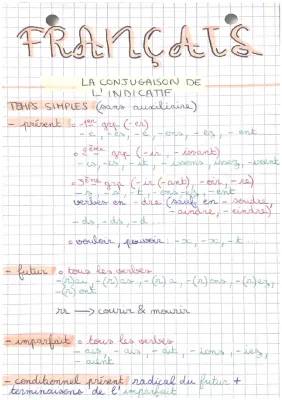 FRANÇAIS
LA CONJUGAISON DE
L'INDICATIF
TEMPS SIMPLES (sans auxiliaire)
- présent : - 1er grp (-er)
-e, -es, -e, -ons, -ez, -ent
o 2ème grp (-ir, -issant)
-is, -is, -it, -issons, issez, -issent
o 3ème grp (-ir (-ant) -oir, -re)
-s, -s, -t, -ons, -ez, -ent
verbes en -dre (sauf en -soudre,
-eindre, -aindre)
-ds, -ds, -d
o vouloir, pouvoir -x, -x, -t
- futur o tous les verbes
-(r)ai, -(r)as, -(r)a, -(r)ons, -(r)ez,
-(r)ont
rr → courir & mourir
- imparfait o tous les verbes
-ais, -ais, -ait, -ions, -iez,
-aient
- conditionnel présent radical du futur +
terminaisons de l'imparfait